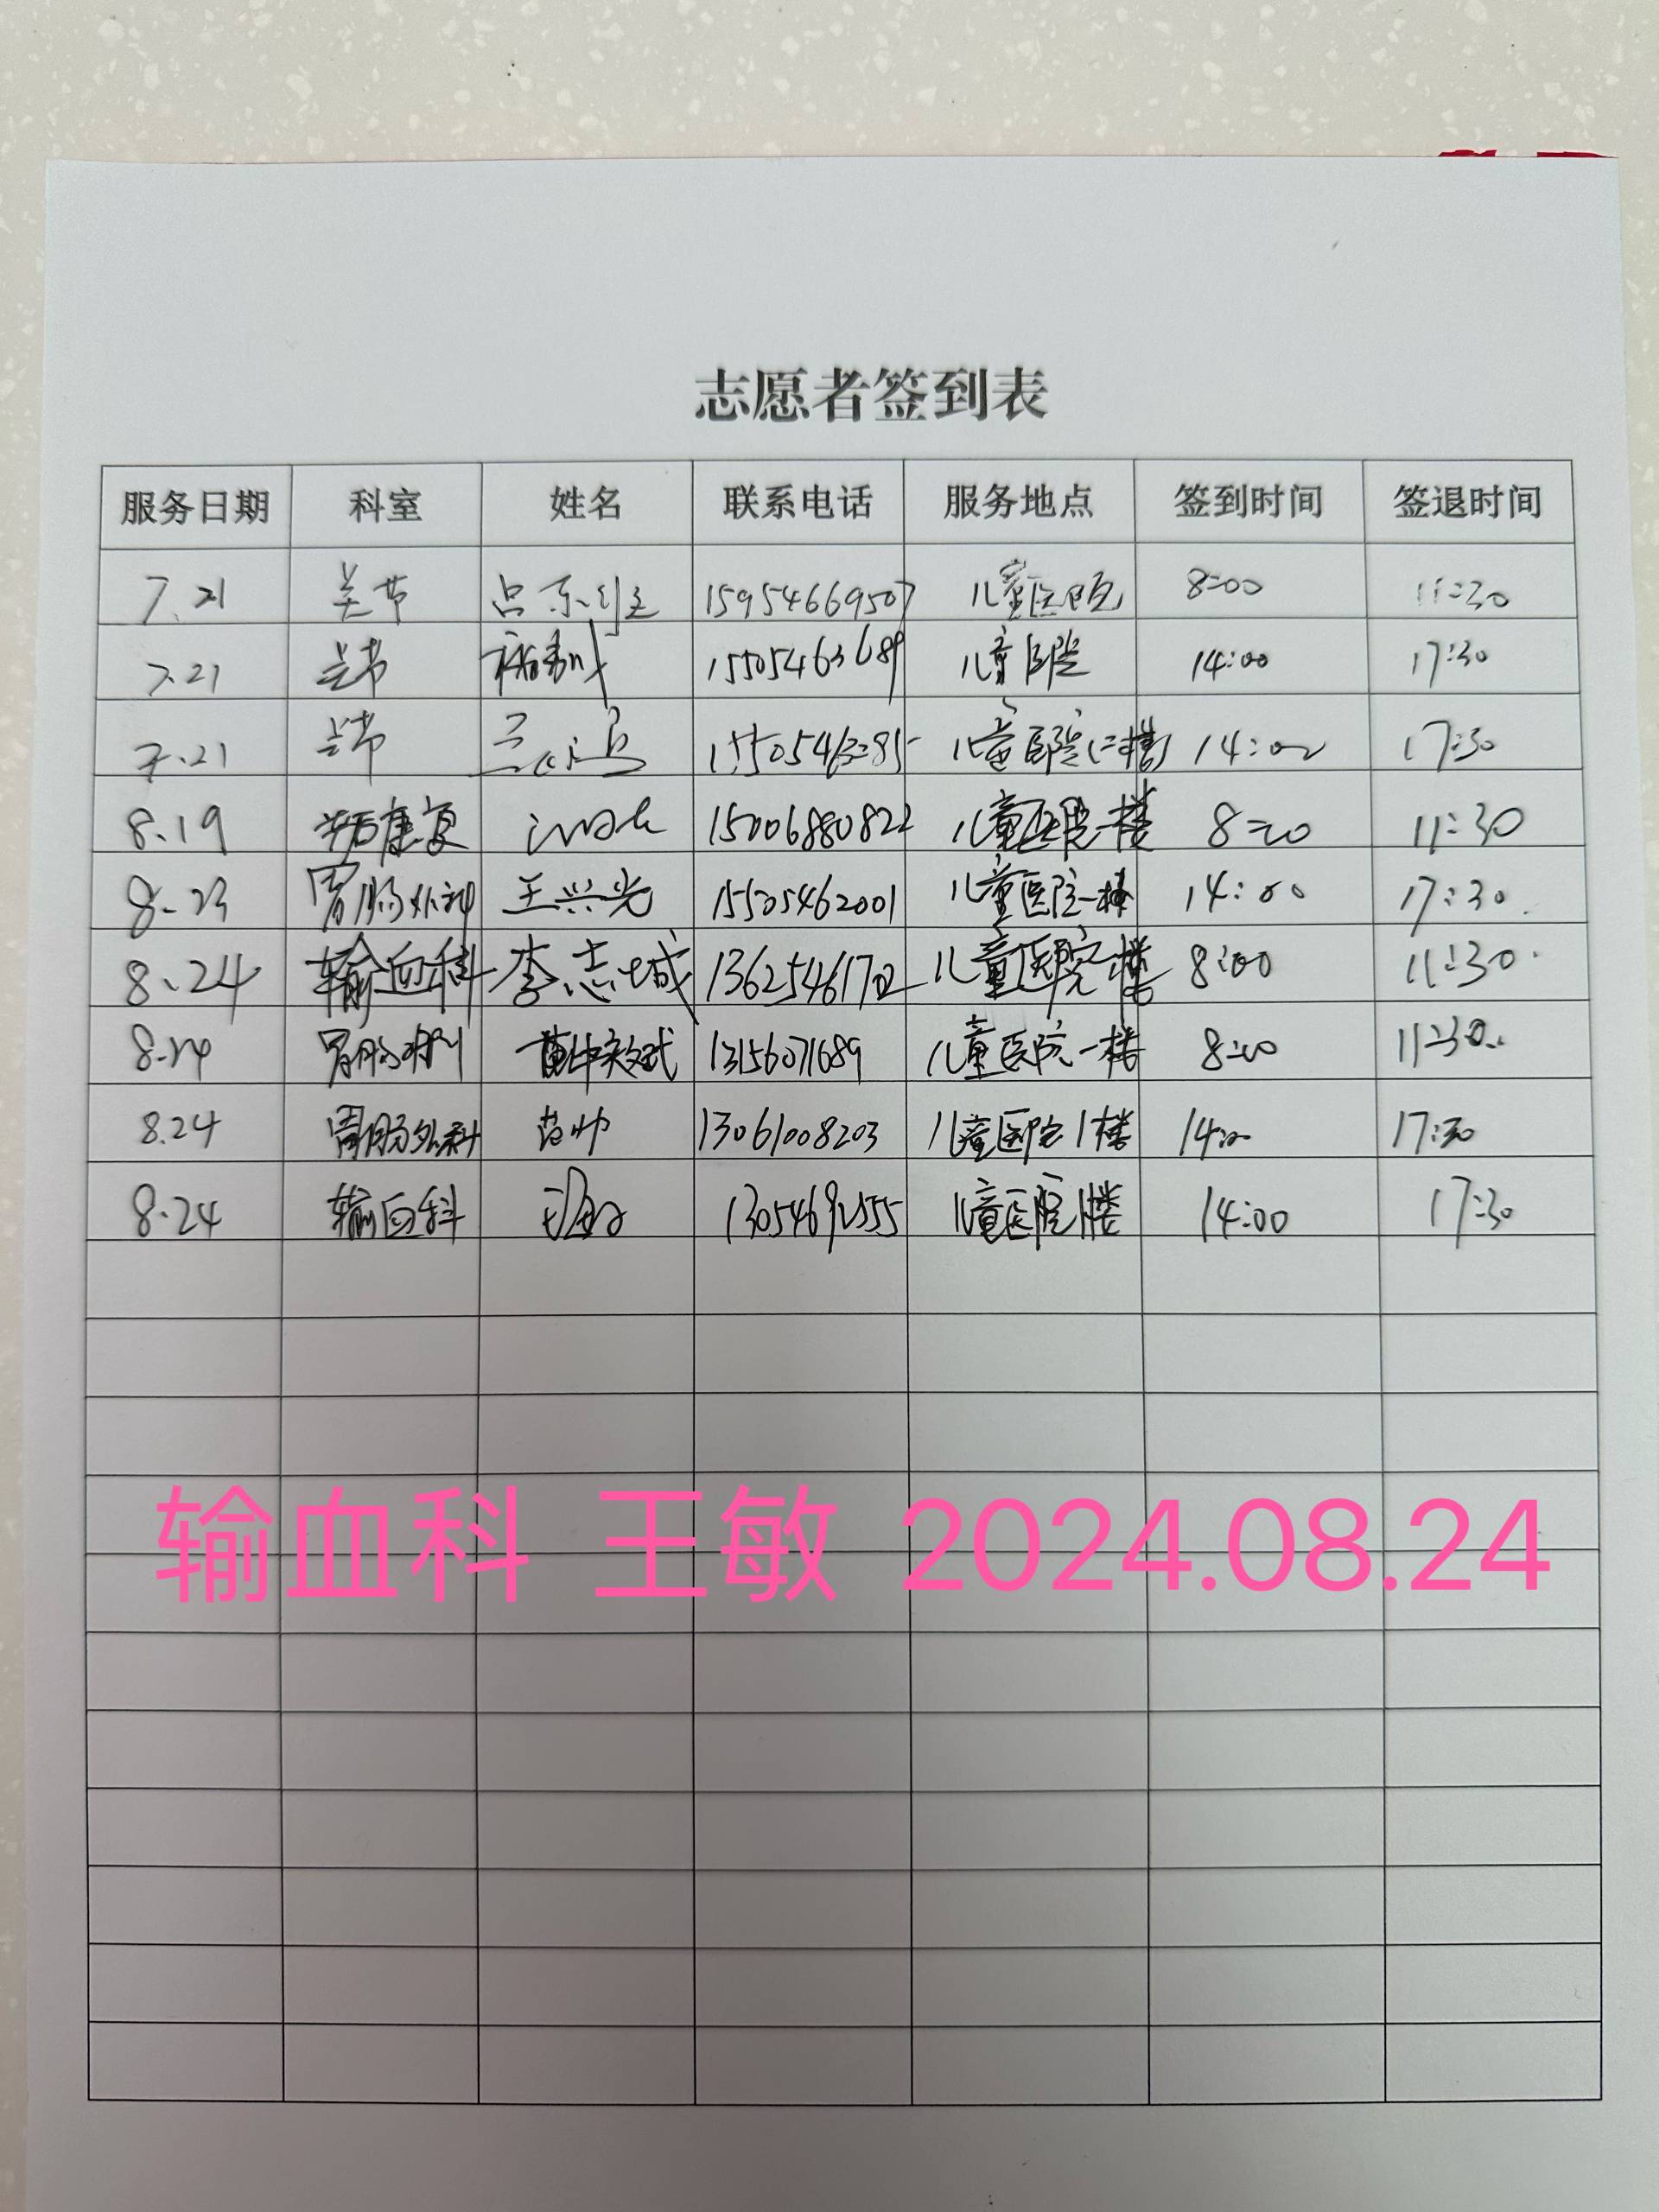 志愿者签到表
服务日期 科室 姓名 联系电话 服务地点 签到时间 签退时间
7.21 关节 15954669507 儿童医院 8:00 11:30
7.21 关节 15505463689 儿童医院 14:00 17:30
7.21 关节 儿童医院(二楼) 14:00 17:30
8.19 康复 15006880822 儿童医院一楼 8:00 11:30
8.23 胃肠外科 王兴光 15505462001 儿童医院一楼 14:00 17:30
8.24 输血科 李志城 13625461702 儿童医院一楼 8:00 11:30
8.24 胃肠外科 13156071689 儿童医院一楼 8:00 11:30
8.24 胃肠外科 13061008203 儿童医院1楼 14:00 17:30
8.24 输血科 王敏 儿童医院1楼 14:00 17:30
输血科 王敏 2024.08.24